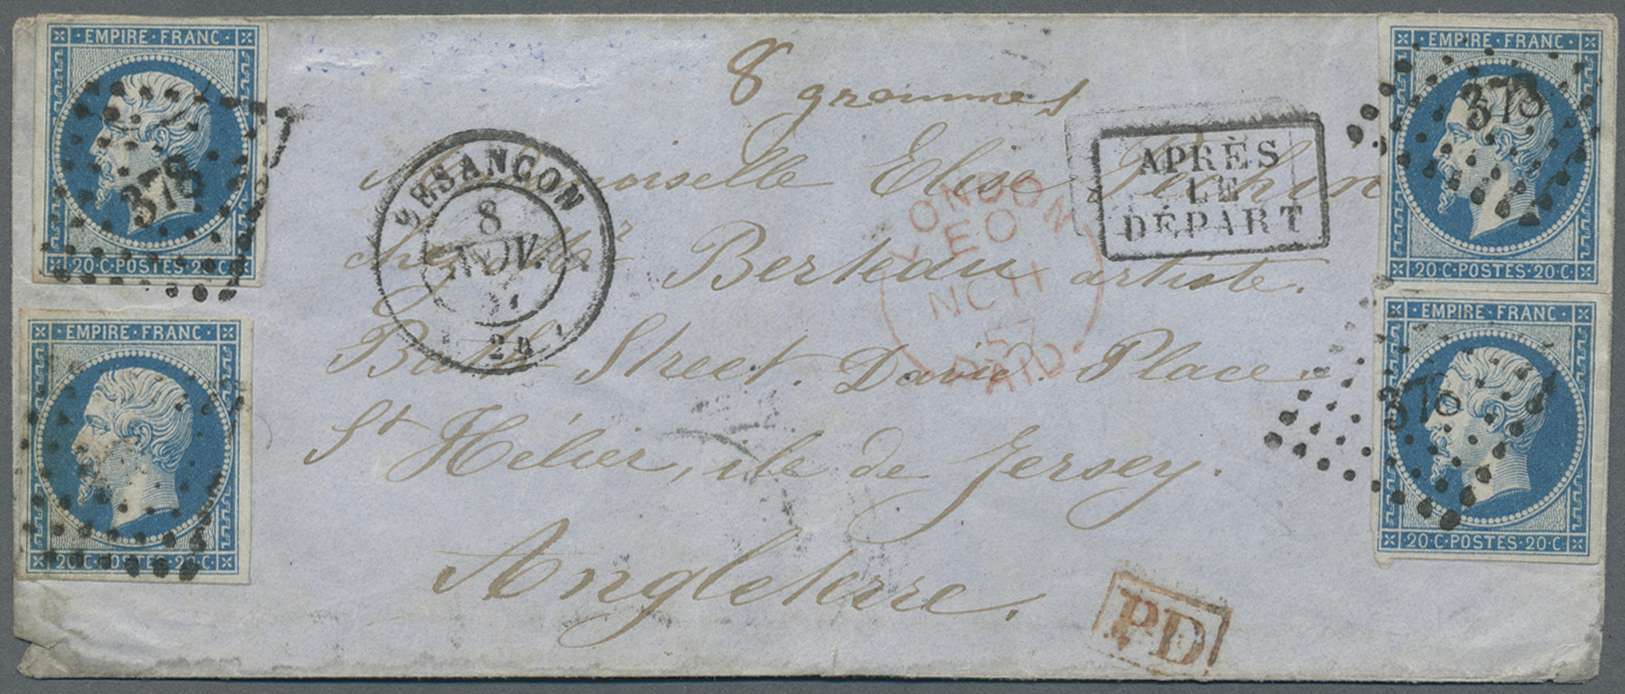 EMPIRE·FRANC
378
20·C·POSTES·20·C
EMPIRE·FRANC
20·C·POSTES·20·C
8 grammes
BESANÇON
8
NOV.
APRÈS
LE
DÉPART
EMPIRE·FRANC
378
20·C·POSTES·20·C
EMPIRE·FRANC
378
20·C·POSTES·20·C
LONDON
EO
NC11
57
PAID
Elise
chez Mr Berteau artiste.
Bath Street. David Place.
St Hélier, ile de Jersey.
Angleterre.
PD